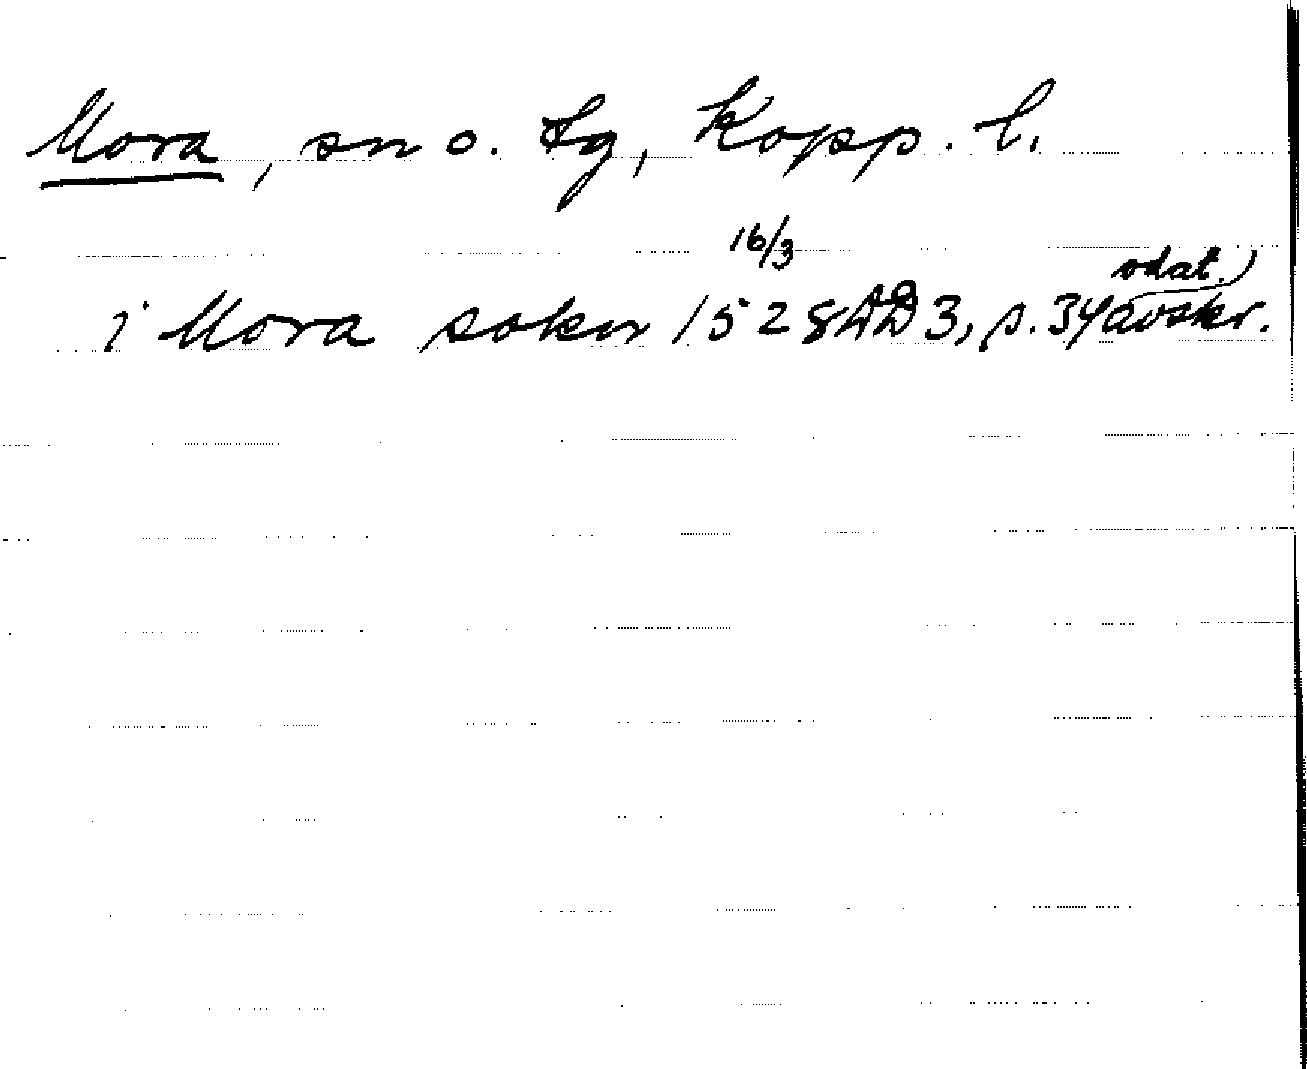 Mora, sn o. tg, Kopp. l.
16/3 odat.)
i Mora sokn 1528 DD 3, s. 34 avskr.